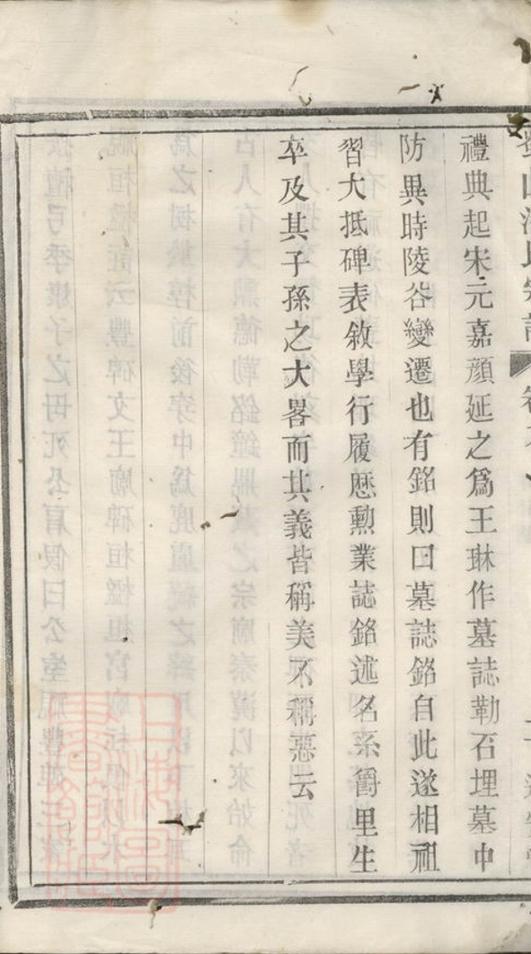 禮典起宋元嘉顔延之爲王琳作墓誌勒石埋墓中
防異時陵谷變遷也有銘則曰墓誌銘自此遂相祖
習大抵碑表敘學行履歷勲業誌銘述名系爵里生
卒及其子孫之大畧而其義皆稱美不稱惡云